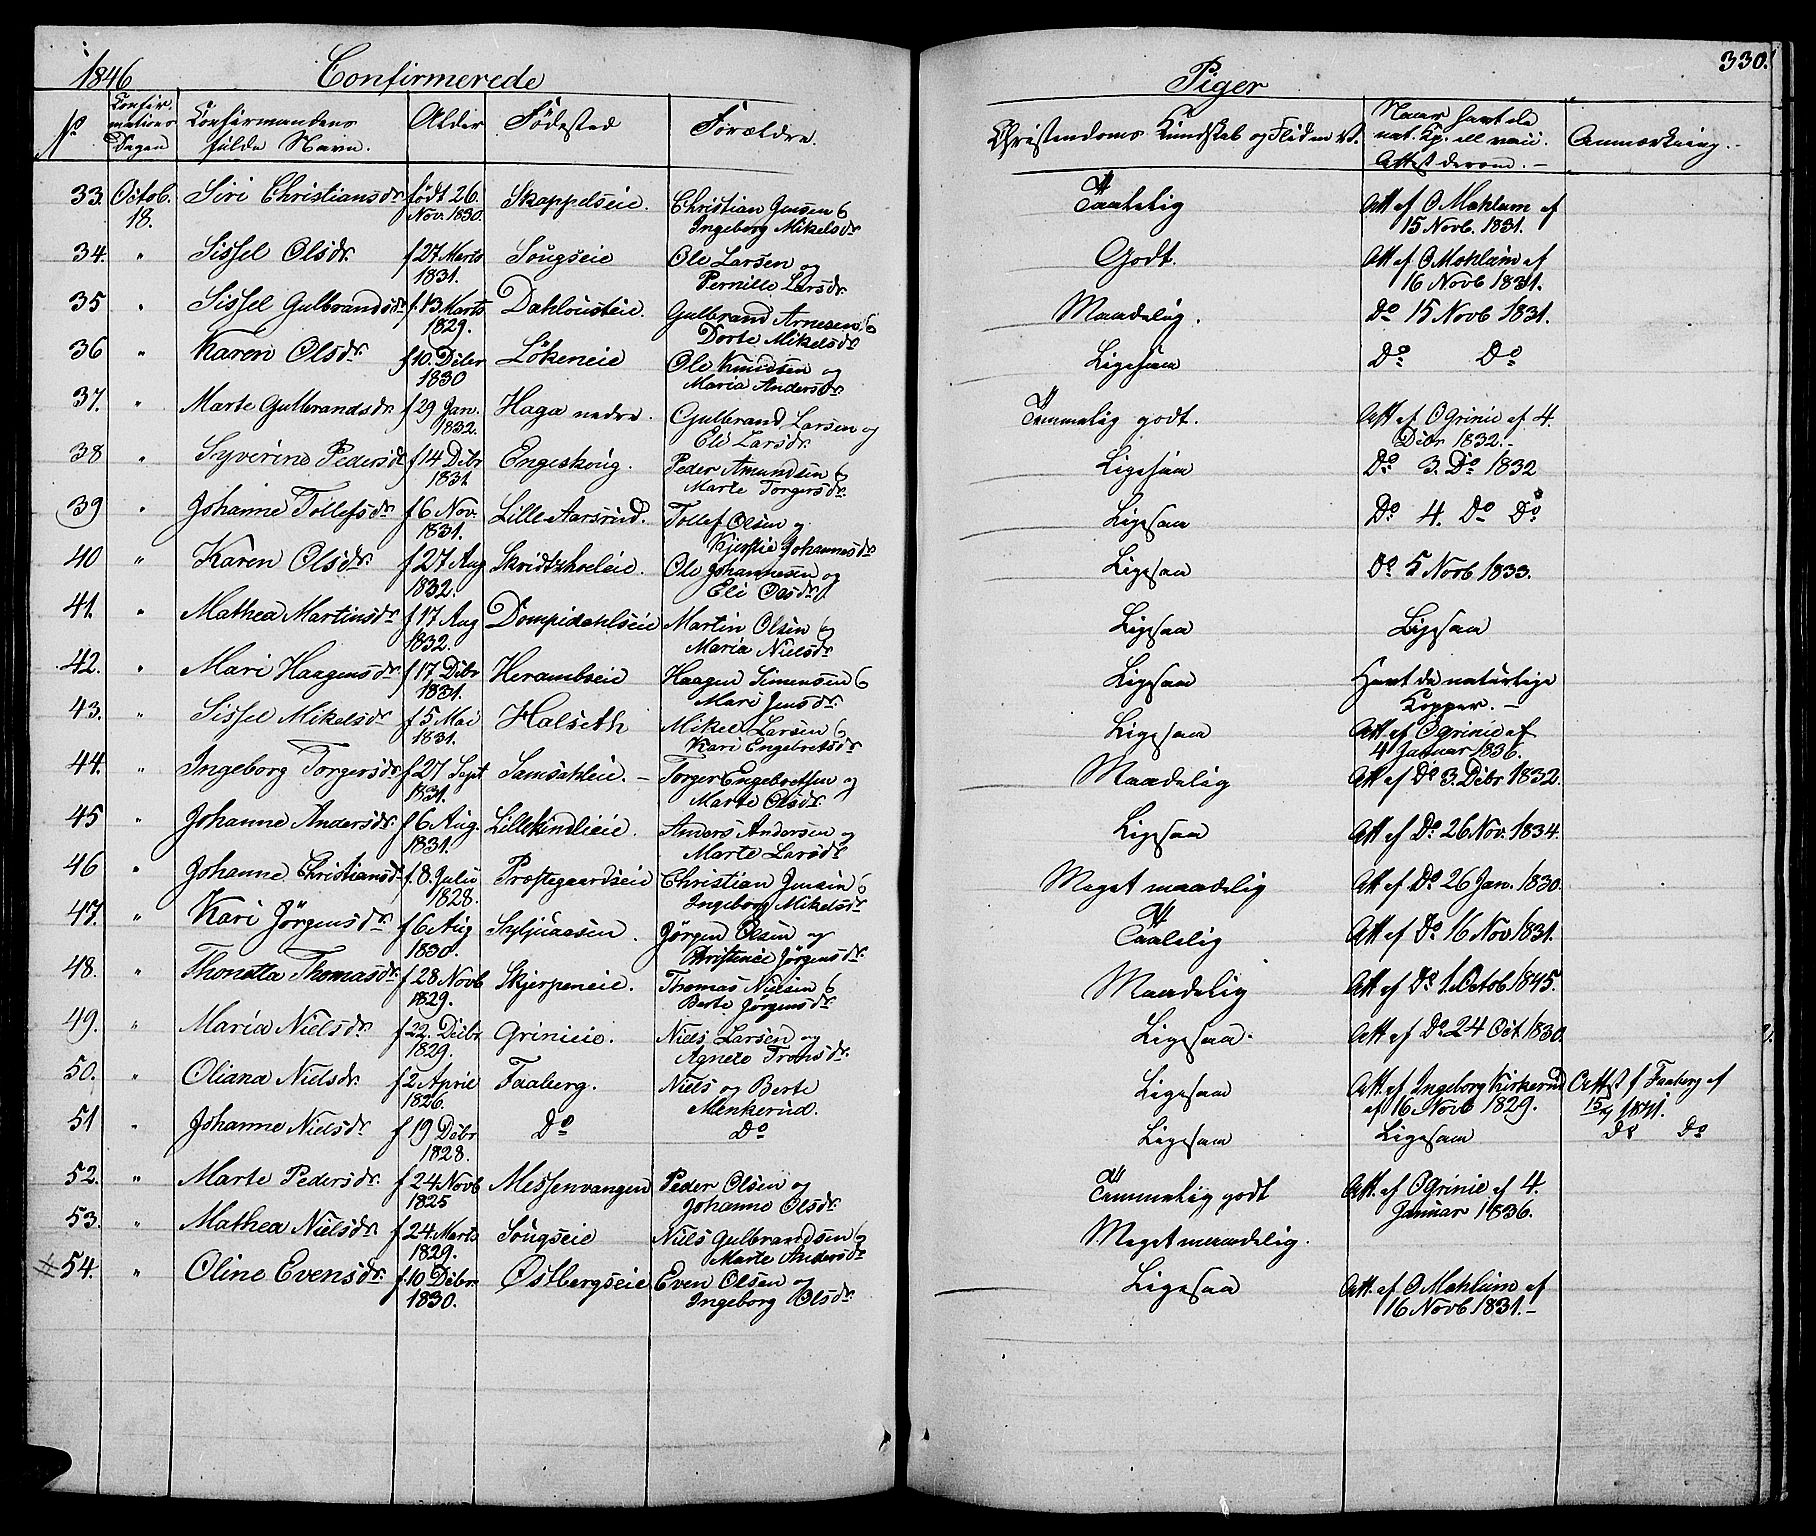 1846 Confirmerede Piger 330.
No Confirmations Dagen Confirmandens fulde Navn. Alder Fødested Forældre. Christendoms Kundskab og Flid m. v. Naar havt de nat. Kp. ell vacc. Attest derom. – Anmærkning. –
33. Octob. 18. Siri Christiansdr. født 26. Nov. 1830. Skappelseie. Christian Jensen & Ingeborg Mikelsdr Taalelig Att. af O Mæhlum af 15 Novb. 1831.
34. " Sissel Olsdr. f 27 Marts 1831. Sougseie Ole Larsen og Pernille Larsdr. Godt. Att. af O Mæhlum af 16 Novb 1831.
35 " Sissel Gulbrandsdr f. 13 Marts 1829. Gulbrand Arnesen & Dorte Mikelsdr Maadelig. Do 15 Novb 1831.
36 " Karen Olsdr. f 10. Debr 1830 Løkeneie Ole Knudsen og Maria Andersdr. Ligesaa Do Do
37. " Marte Gulbrandsdr. f 29 Jan. 1832. Haga nedre. Gulbrand Larsen og Eli Larsdr. Temmelig godt. Att. af O Grinie af 4. Debr 1832. –
38 " Syverine Pedersdr f 14 Debr 1831 Engeskoug. Peder Amundsen & Marte Torgersdr. Ligesaa Do 3. Do 1832
39 " Johanne Tollefsdr. f 6 Nov. 1831. Lille Aarsrud. Tollef Olsen og Kjerstie Johannesdr Ligesaa Do 4. Do Do
40 " Karen Olsdr. f 27 Aug 1832. Ole Johannesen og Eli Olsdr. Ligesaa Do 5 Novb 1833.
41. " Mathea Martinsdr. f 17 Aug 1832. Dompidahlseie Martin Olsen og Maria Nielsdr Ligesaa Ligesaa
42. " Mari Haagensdr. f 17. Debr 1831. Herambseie Haagen Simensen & Mari Jensdr. Ligesaa Havt de naturlige Kopper. –
43. " Sissel Mikelsdr. f 5 Mai 1831. Halseth Mikel Larsen & Kari Engebretsdr Ligesaa Att. af O Grinie af 4 Januar 1836.
44. " Ingeborg Torgersdr. f 27 Sept 1831. – Torger Engebretsen og Marte Olsdr. Maadelig Att af Do 3. Debr 1832.
45 " Johanne Andersdr. f 6 Aug. 1831. Anders Andersen og Marte Larsdr Ligesaa Att af Do 26 Nov. 1834.
46 " Johanne Christiansdr f. 8. Julii 1828. Præstegaardseie Christian Jensen & Ingeborg Mikelsdr Meget maadelig Att af Do 26 Jan. 1830.
47. " Kari Jørgensdr. f 6 Aug 1830. Jørgen Olsen og Christine Jørgensdr. Taalelig Att af Do 16 Nov 1831.
48. " Thonetta Thomasdr. f 28 Novb 1829. Skjerpeneie. Thomas Nielsen & Berte Jørgensdr. Maadelig Att af Do 1. Octob 1845.
49. " Maria Nielsdr. f 22. Debr 1829. Grinieie. Niels Larsen og Agnete Tronsdr. Ligesaa. Att af Do 24 Oct. 1830.
50. " Oliana Nielsdr. f 2 April 1826. Faaberg. Niels og Berte Menkerud. Ligesaa Att. af Ingeborg Kirkerud af 16 Novb 1829. Attest f Faaberg af
51 " Johanne Nielsdr. f 19 Debr 1828. Do Do Ligesaa Ligesaa Do Do
52. " Marte Pedersdr. f 24 Novb 1825 Messenvangen Peder Olsen og Johanne Olsdr. Temmelig godt Att. af O Grinie af 4. Januar 1836.
53. " Mathea Nielsdr. f 24. Marts 1829. Sougseie Niels Gulbrandsen & Marte Andersdr Meget maadelig.
54. " Oline Evensdr. f 10 Debr. 1830. Østbergseie Even Olsen og Ingeborg Olsdr. Ligesaa Att. af O Mæhlum af 16 Novb 1831. –